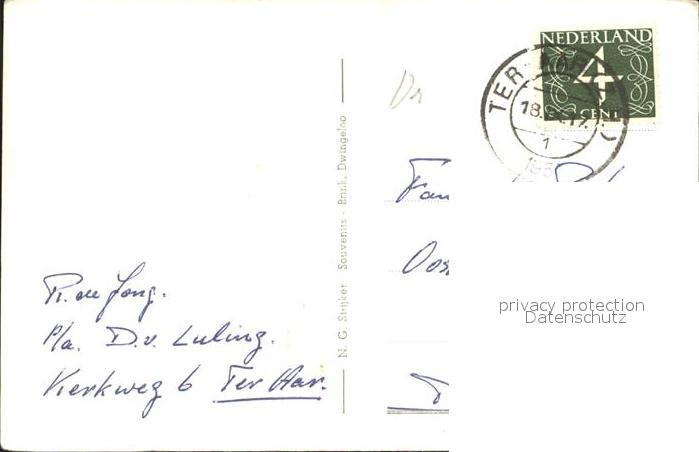 NEDERLAND
4
CENT
TER AAR
18.
17.
1
195
N. G. Strijker Souvenirs - Brink, Dwingeloo
Fam
Oos
R. de Jong.
P/a. D.v. Luling.
Kerkweg 6 Ter Aar.
privacy protection
Datenschutz